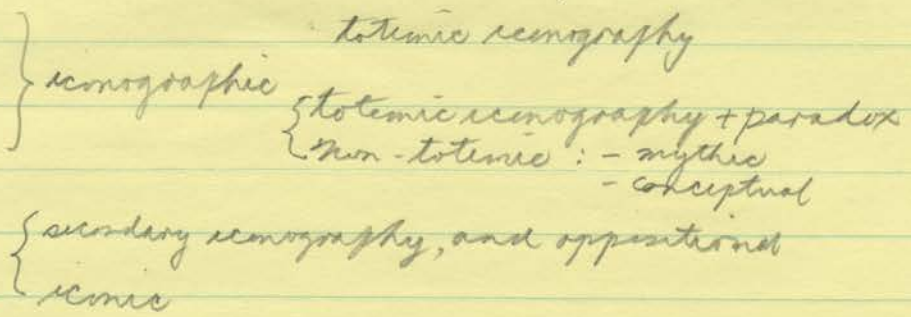 totemic iconography
} iconographic
{ totemic iconography + paradox
Non-totemic : - mythic
- conceptual
{ secondary iconography, and oppositional
iconic